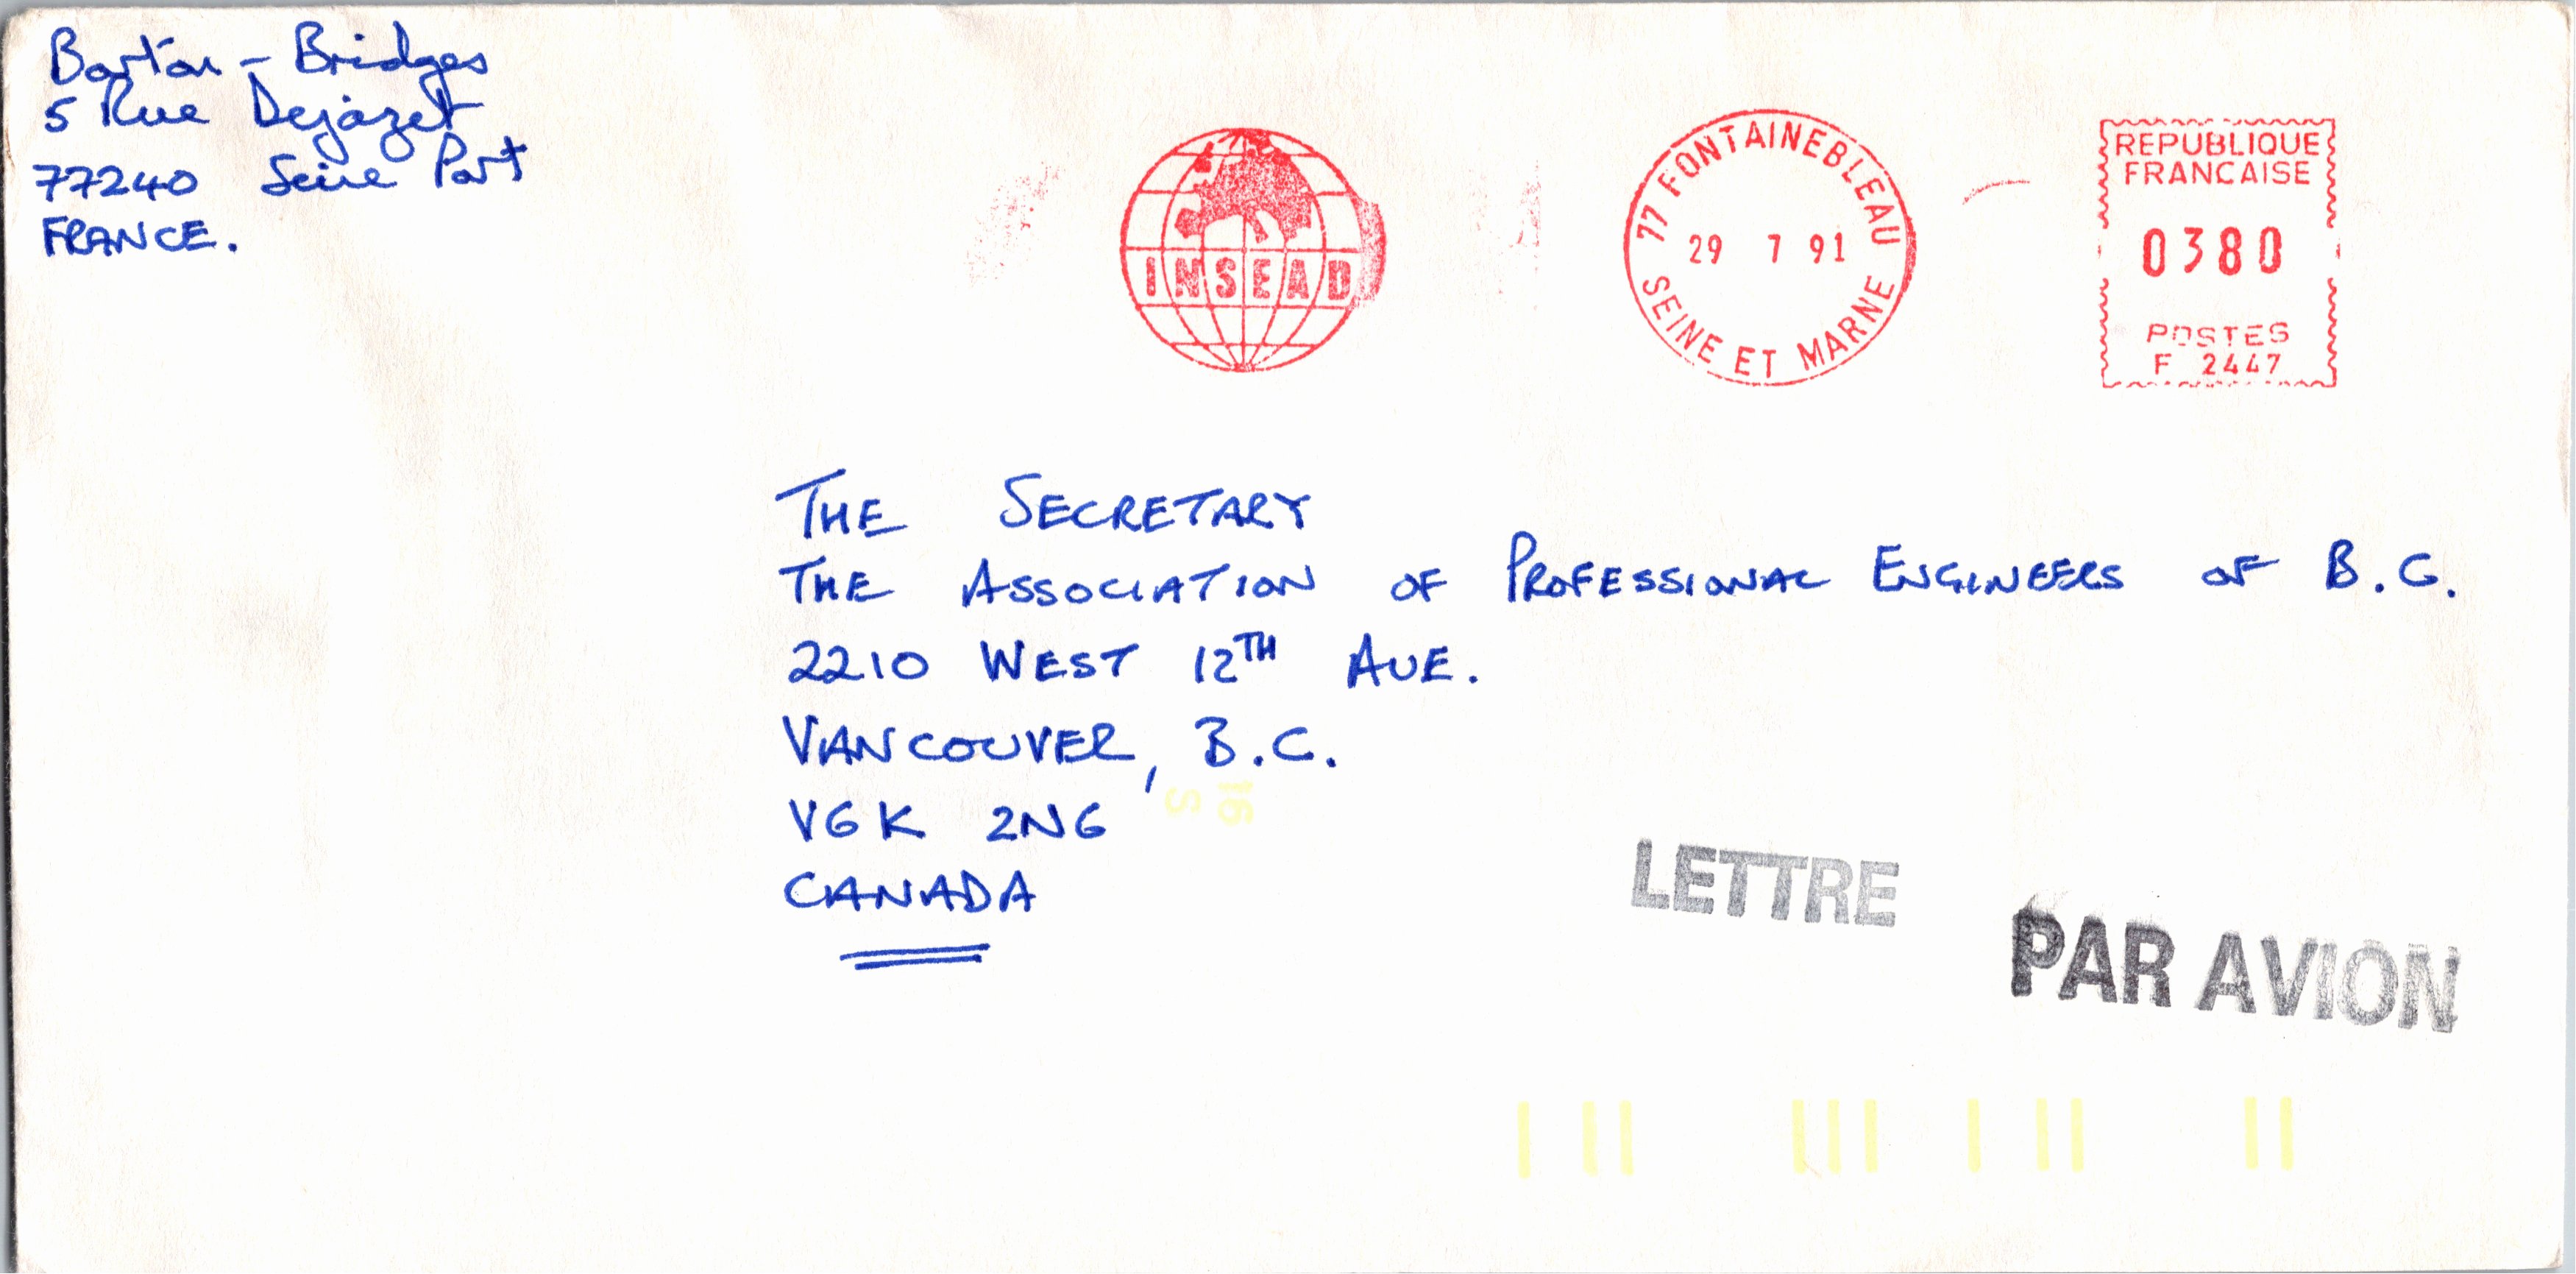 Barton - Bridges
5 Rue Dejazet
77240 Seine Port
FRANCE.
INSEAD
77 FONTAINEBLEAU
29 7 91
SEINE ET MARNE
REPUBLIQUE
FRANCAISE
0380
POSTES
F 2447
THE SECRETARY
THE ASSOCIATION OF PROFESSIONAL ENGINEERS OF B.C.
2210 WEST 12TH AVE.
VANCOUVER, B.C.
V6K 2N6
CANADA
16
S
LETTRE
PAR AVION